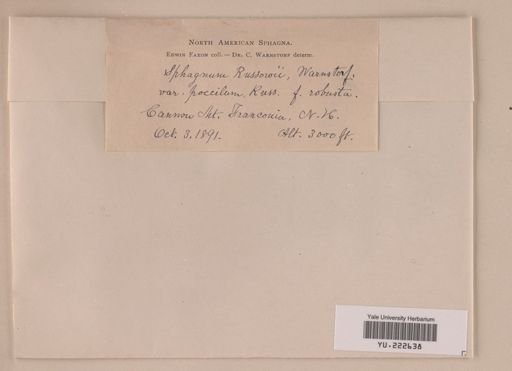 North American Sphagna.
Edwin Faxon coll.—Dr. C. Warnstorf determ.
Sphagnum Russowii, Warnstorf.
var. poecilum, Russ. f. robusta.
Cannon Mt. Franconia, N.H.
Oct. 3, 1891. Alt. 3000 ft.
Yale University Herbarium
YU.222638